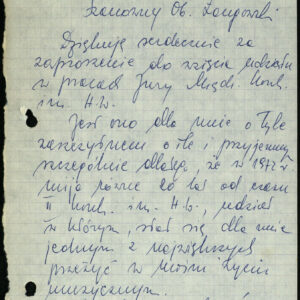 Szanowny Ob. Zongowski
Dziękuję serdecznie za
zaproszenie do wzięcia udziału
w pracach Jury Międz. Konk.
im. H. W.
Jest ono dla mnie o tyle
zaszczytnem o ile i przyjemnym
szczególnie dlatego, że w 1972 r
mija równe 20 lat od czasu
II konk. im. H. W., udział
w którym, stał się dla mnie
jednym z największych
przeżyć w moim życiu
muzycznym.